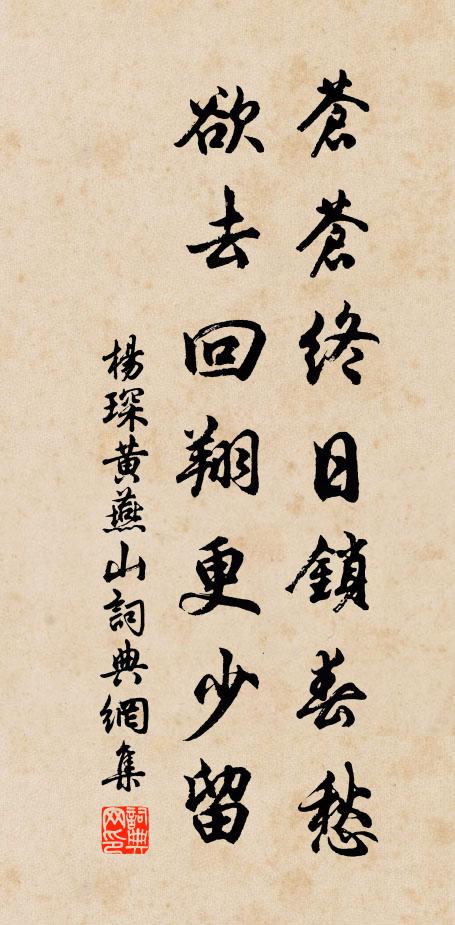 蒼蒼終日鎖春愁
欲去回翔更少留
楊琛黃燕山詞典網集
詞典
网印